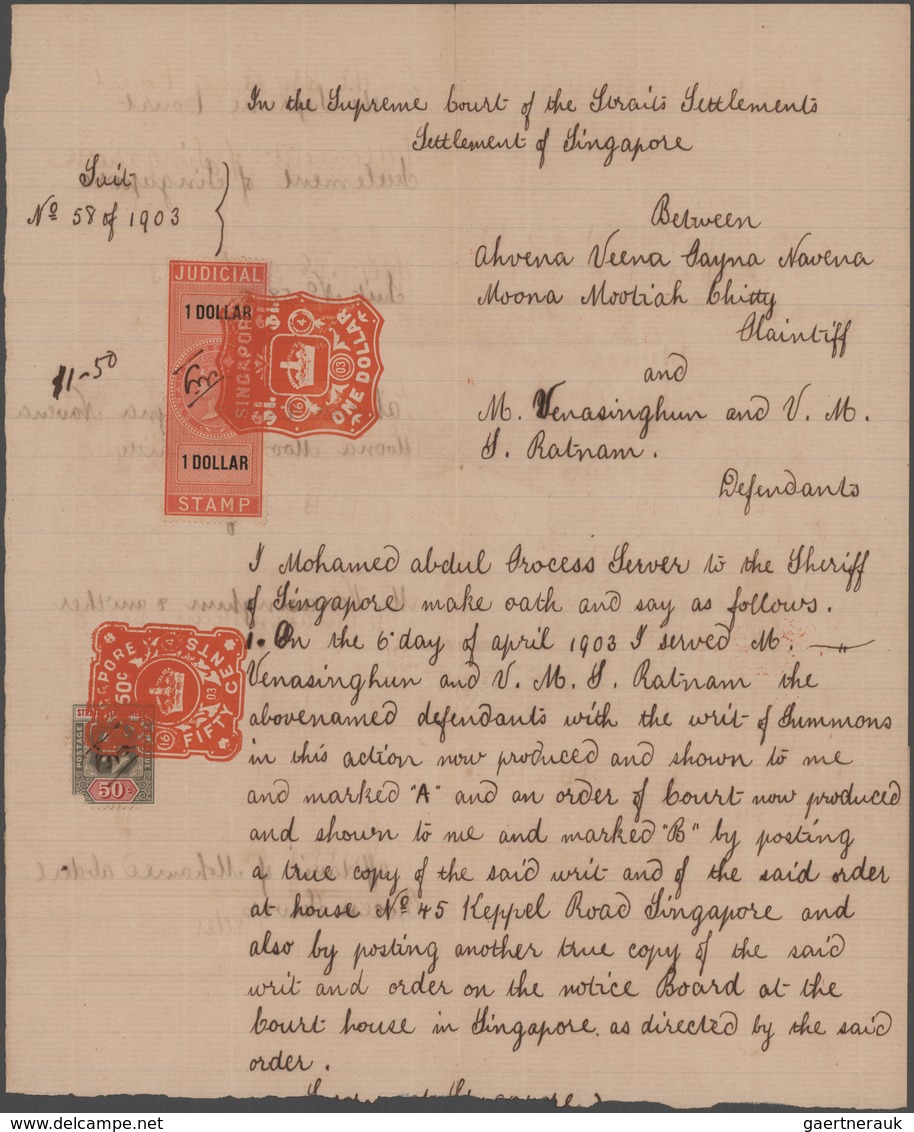 In the Supreme Court of the Straits Settlements
Settlement of Singapore
Suit
No 58 of 1903
Between
Ahvena Veena Sayna Navena
Moona Mootiah Chitty
Plaintiff
and
M. Venasinghun and V. M.
S. Ratnam.
Defendants
JUDICIAL
1 DOLLAR
1 DOLLAR
STAMP
SINGAPORE
$1.
$1.
ONE DOLLAR
4
03
16
$1-50
I Mohamed abdul Process Server to the Sheriff
of Singapore make oath and say as follows.
1. On the 6 day of april 1903 I served M.
Venasinghun and V. M. S. Ratnam the
abovenamed defendants with the writ of Summons
in this action now produced and shown to me
and marked "A" and an order of Court now produced
and shown to me and marked "B" by posting
a true copy of the said writ and of the said order
at house No 45 Keppel Road Singapore and
also by posting another true copy of the said
writ and order on the notice Board at the
Court house in Singapore. as directed by the said
order.
50c
FIFTY CENTS
03
16
POSTAGE
50c
gaertnerauk